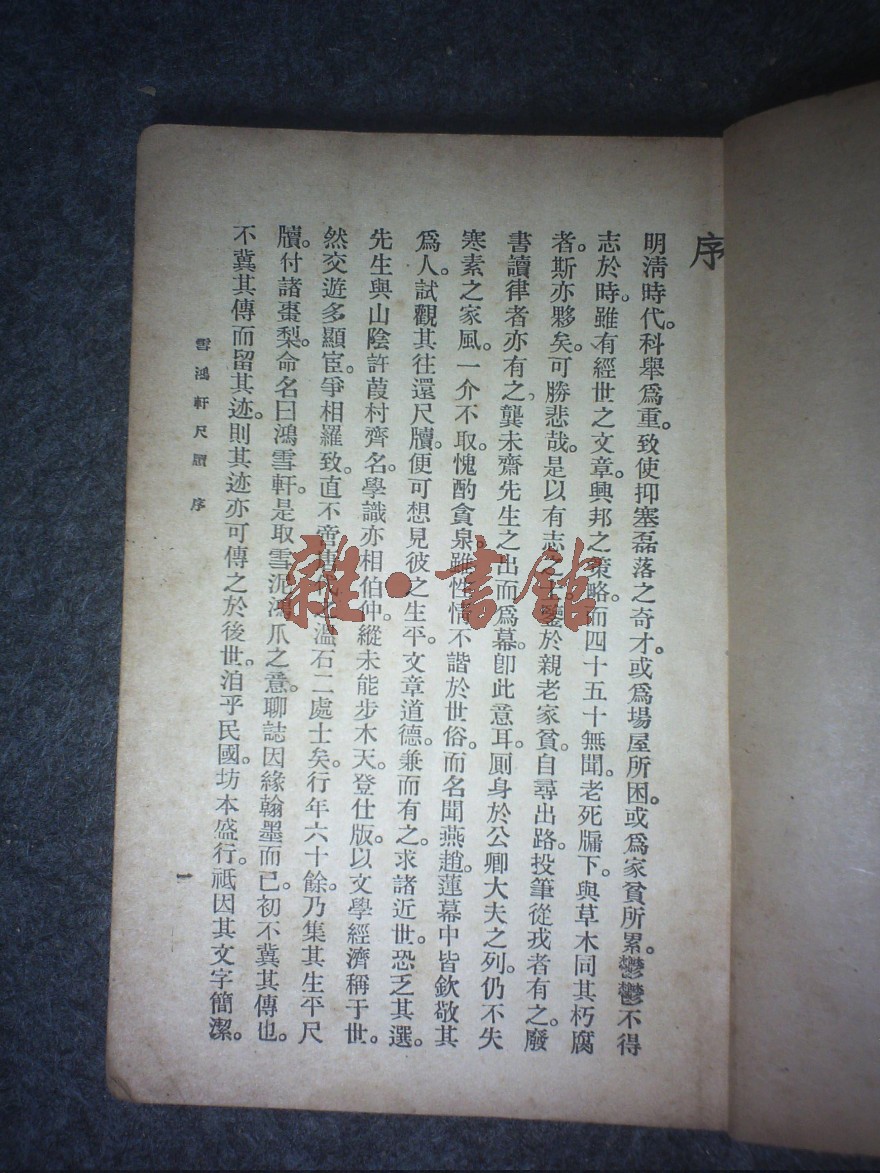 序
明淸時代。科舉爲重。致使抑塞磊落之奇才。或爲場屋所困。或爲家貧所累。鬱鬱不得
志於時。雖有經世之文章。興邦之策略。而四十五十無聞。老死牖下。與草木同其朽腐
者。斯亦夥矣。可勝悲哉。是以有志之士。鑒於親老家貧。自尋出路。投筆從戎者有之。廢
書讀律者亦有之。龔未齋先生之出而爲幕。卽此意耳。厠身於公卿大夫之列。仍不失
寒素之家風。一介不取。愧酌貪泉。雖性情不諧於世俗。而名聞燕趙。蓮幕中皆欽敬其
爲人。試觀其往還尺牘。便可想見彼之生平。文章道德。兼而有之。求諸近世。恐乏其選。
先生與山陰許葭村齊名。學識亦相伯仲。縱未能步木天。登仕版。以文學經濟稱于世。
然交遊多顯宦。爭相羅致。直不啻唐代之溫石二處士矣。行年六十餘。乃集其生平尺
牘。付諸棗梨。命名曰鴻雪軒。是取雪泥鴻爪之意。聊誌因緣翰墨而已。初不冀其傳也。
不冀其傳而留其迹。則其迹亦可傳之於後世。洎乎民國。坊本盛行。祇因其文字簡潔。
雪鴻軒尺牘 序
一
雜·書館